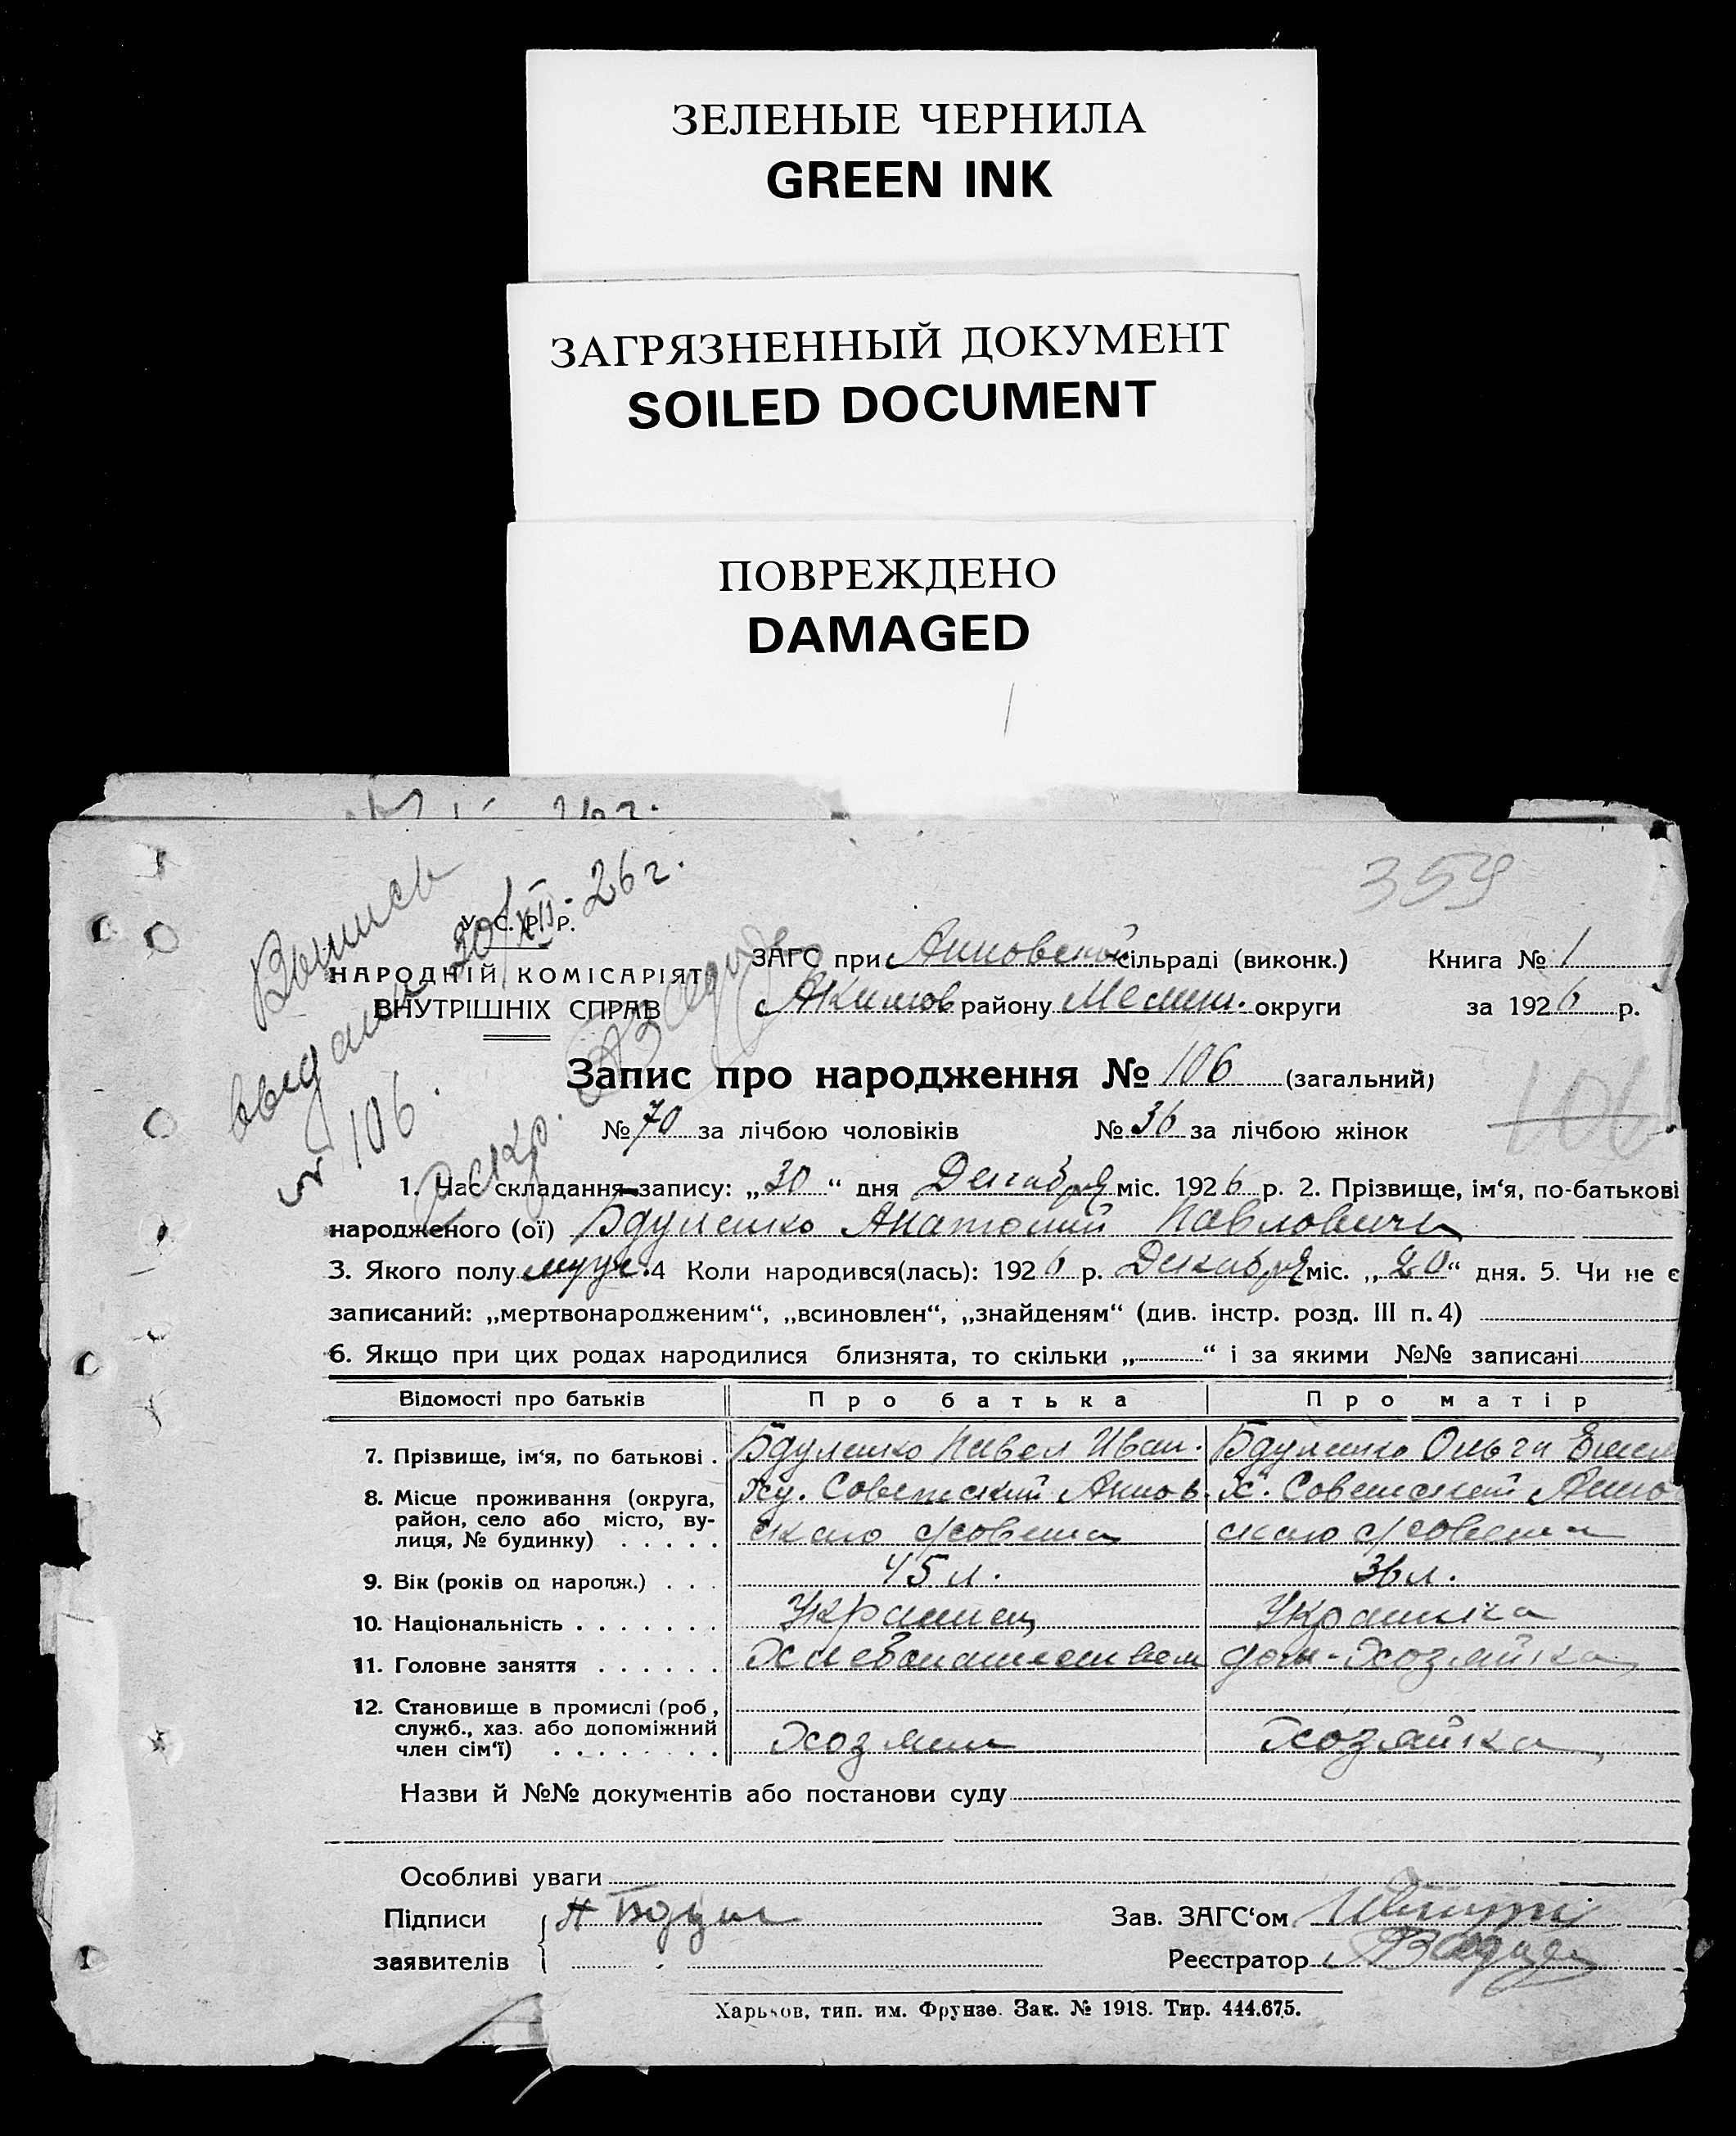 ЗЕЛЕНЫЕ ЧЕРНИЛА
GREEN INK
ЗАГРЯЗНЕННЫЙ ДОКУМЕНТ
SOILED DOCUMENT
ПОВРЕЖДЕНО
DAMAGED
26 г.
359
Выпись
выдана 30/XII-26 г.
№ 106.
У. С. Р. Р.
НАРОДНІЙ КОМІСАРІЯТ
ВНУТРІШНІХ СПРАВ
ЗАГС при Анновской сільраді (виконк.) Книга № 1
Акимов району Мелит. округи за 1926 р.
Запис про народження № 106 (загальний)
106
№ 70 за лічбою чоловіків № 36 за лічбою жінок
1. Час складання запису: „30“ дня Декабря міс. 1926 р. 2. Прізвище, ім‘я, по-батькові
народженого (ої) Бдуленко Анатолий Павлович
3. Якого полу муж. 4 Коли народився(лась): 1926 р. Декабря міс. „20“ дня. 5. Чи не є
записаний: „мертвонародженим“, „всиновлен“, „знайденям“ (див. інстр. розд. III п. 4)
6. Якщо при цих родах народилися близнята, то скільки „ “ і за якими №№ записані
Відомості про батьків Про батька Про матір
7. Прізвище, ім‘я, по батькові . Бдуленко Павел Иван. Бдуленко Ольга
8. Місце проживання (округа, район, село або місто, вулиця, № будинку) . . . . . Ху. Советский Аннов. Х. Советский Анно
ского с/совета ского с/совета
9. Вік (років од народж.) . . . 45 л. 36 л.
10. Національність . . . . . . . Украинец Украинка
11. Головне заняття . . . . . . Хлебопашеством дом-Хозяйка
12. Становище в промислі (роб., служб., хаз. або допоміжний член сім‘ї) . . . . . . . Хозяин Хозяйка
Назви й №№ документів або постанови суду
Особливі уваги
Підписи
заявителів
Зав. ЗАГС‘ом
Реєстратор
Харьков, тип. им. Фрунзе. Зак. № 1918. Тир. 444.675.